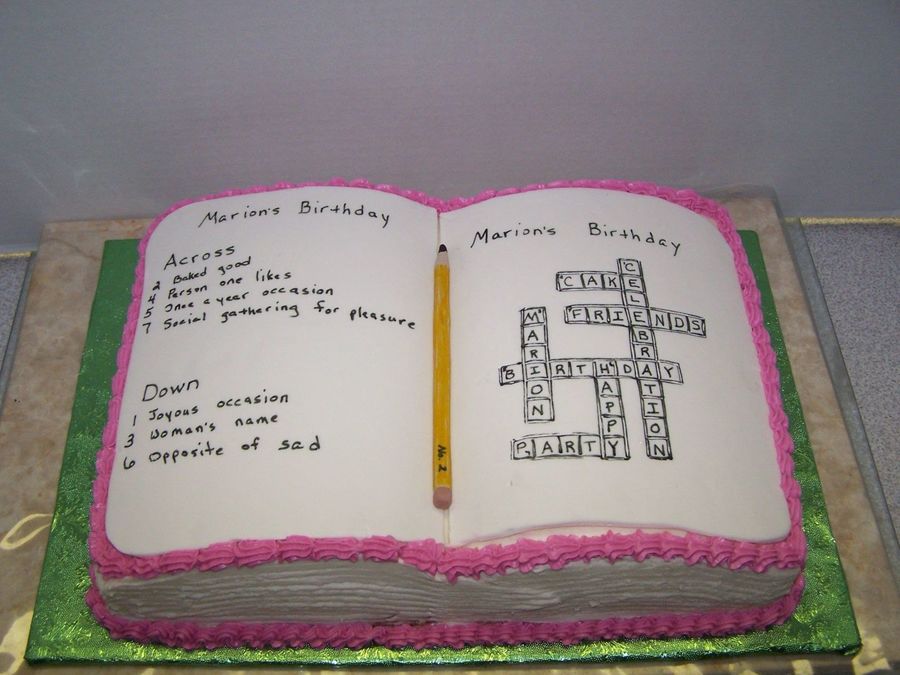 Marion's Birthday
Across
2 Baked good
4 Person one likes
5 Once a year occasion
7 Social gathering for pleasure
Down
1 Joyous occasion
3 Woman's name
6 Opposite of sad
No. 2
Marion's Birthday
CAKE
CELEBRATION
FRIENDS
MARION
BIRTHDAY
HAPPY
PARTY